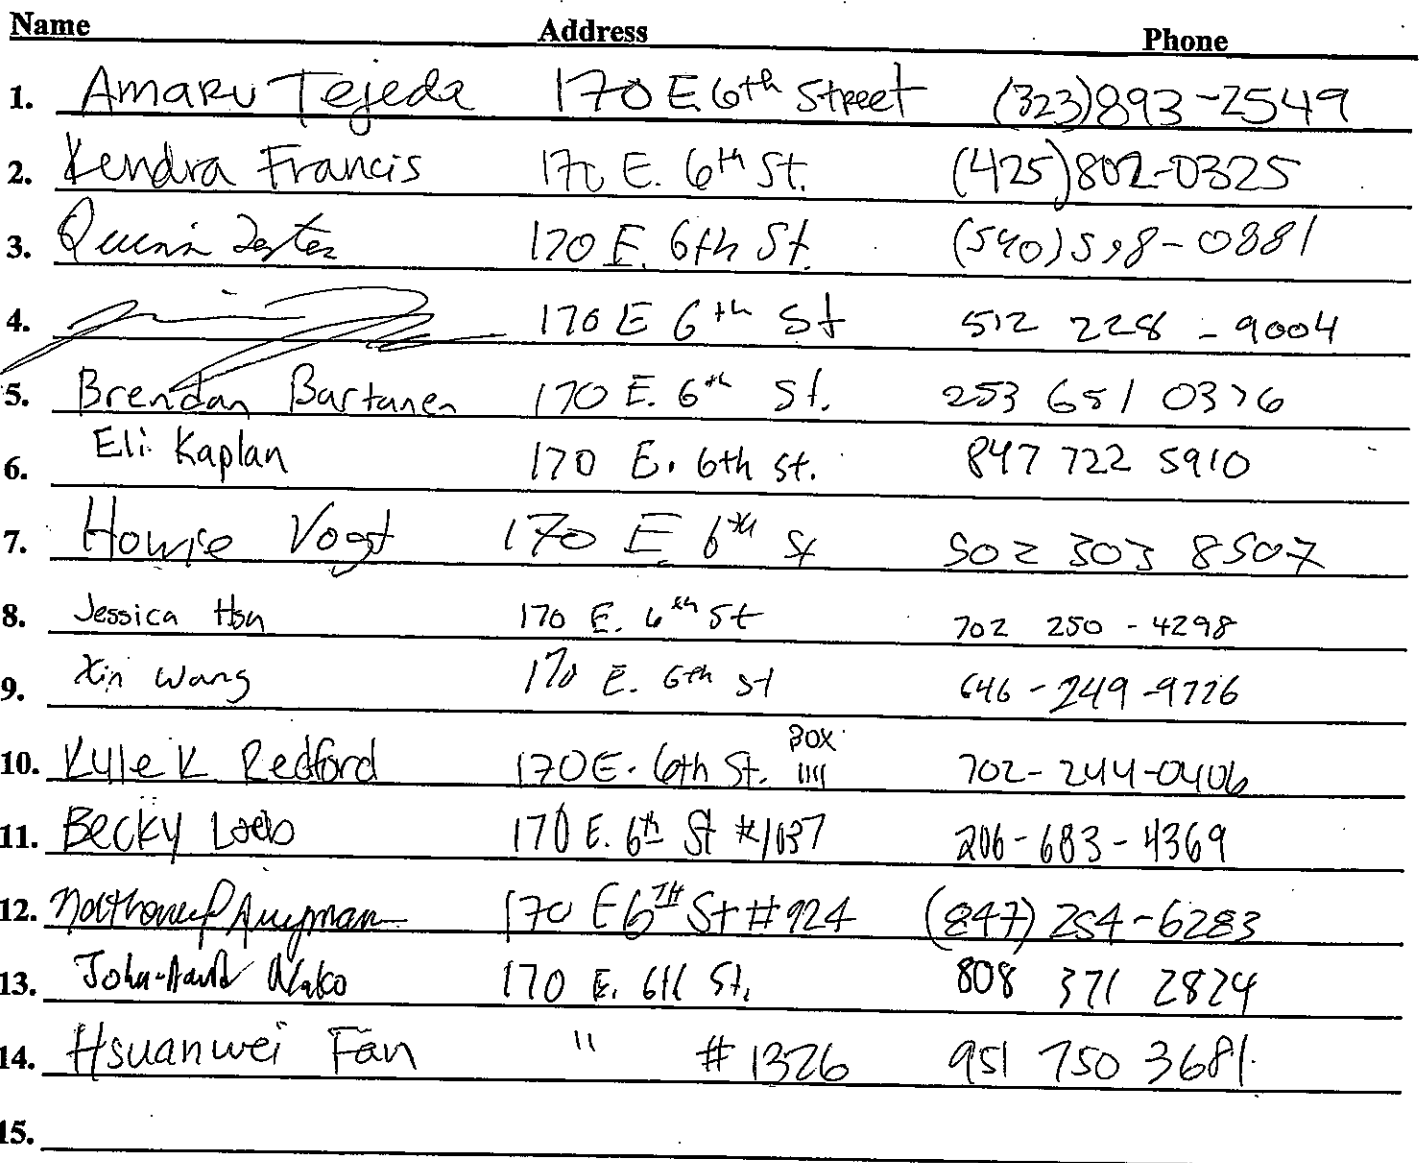 Name Address Phone
1. Amaru Tejeda 170 E 6th Street (323)893-2549
2. Kendra Francis 170 E. 6th St. (425)802-0325
3. Quinn 170 E. 6th St. (540)598-0881
4. 170 E 6th St 512 228-9004
5. Brendan Bartanen 170 E. 6th St. 253 651 0376
6. Eli Kaplan 170 E. 6th St. 847 722 5910
7. Howie Vogt 170 E 6th St 502 303 8507
8. Jessica Hsu 170 E. 6th St 702 250-4298
9. Xin Wang 170 E. 6th St 646-249-9726
10. Kyle K Redford 170 E. 6th St. BOX 1111 702-244-0406
11. Becky Loeb 170 E. 6th St #1037 206-683-4369
12. 170 E 6TH St #924 (847) 254-6283
13. John-David 170 E. 6th St. 808 371 2824
14. Hsuanwei Fan " #1326 951 750 3681
15.